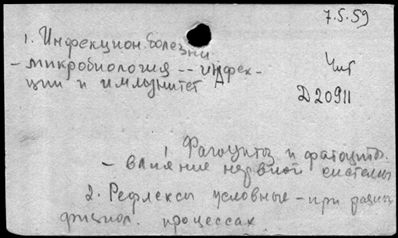 7.5.59
1. Инфекцион. болезни
- микробиология -- инфек-
ции и иммунитет
Чит
Д 20911
1. Фагоциты и фагоцитоз.
- влияние нервной системы
2. Рефлексы условные - при
физиол. процессах.